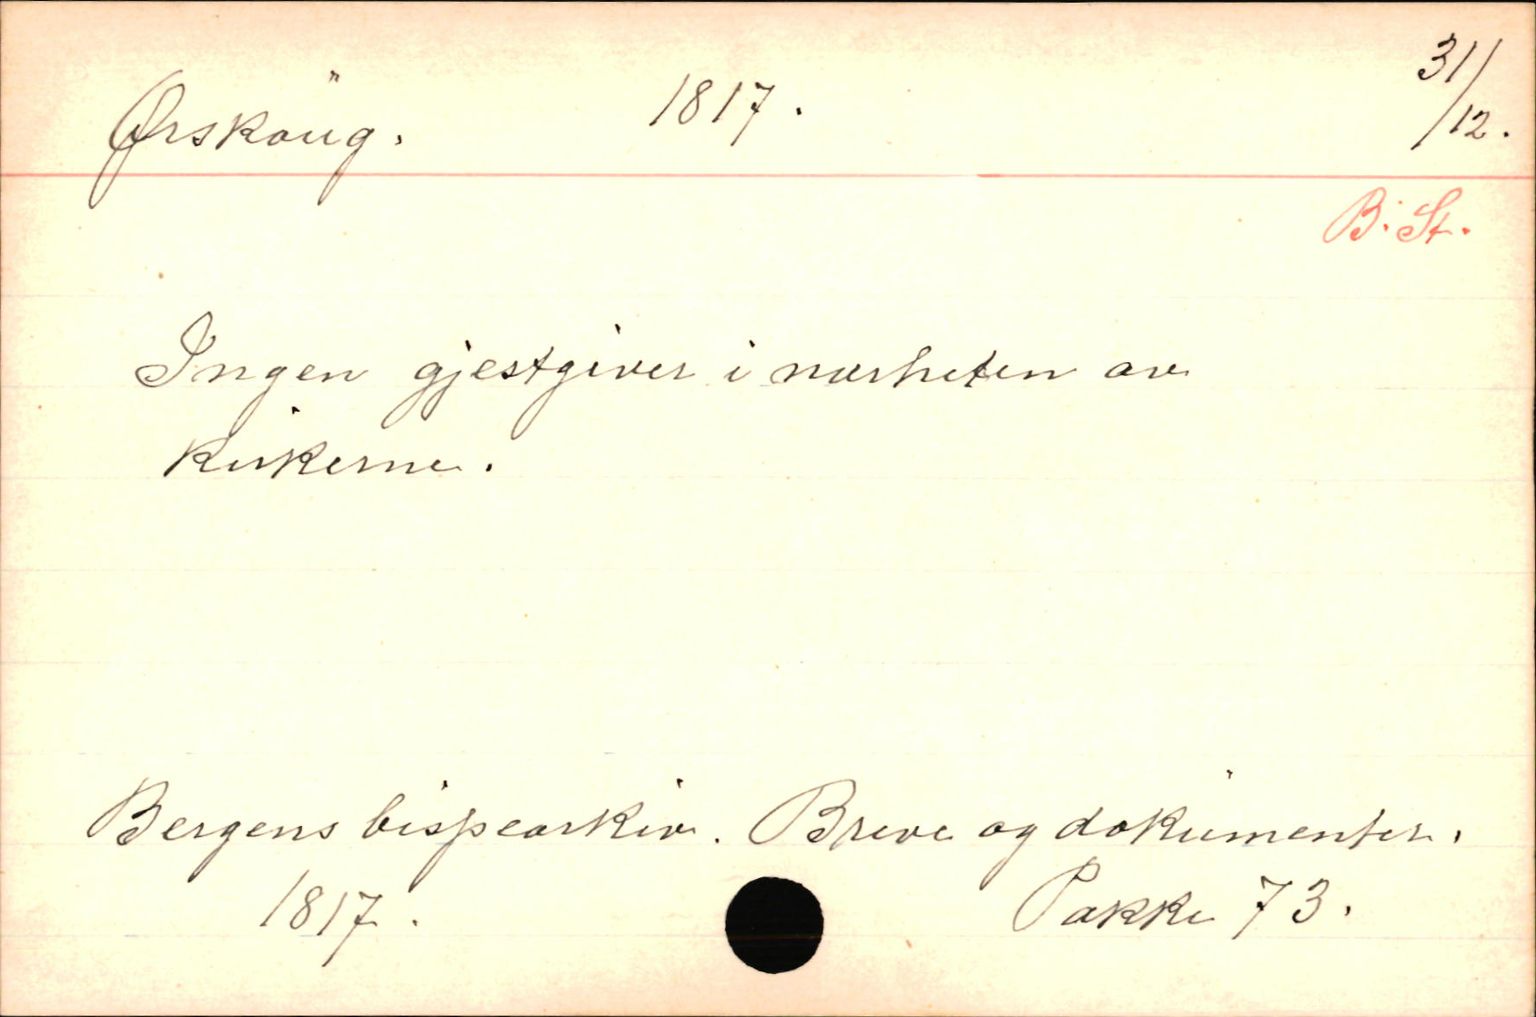 Ørskoug. 1817. 31/12.
B. St.
Ingen gjestgiver i nærheten av
kirkerne.
Bergens bispearkiv. Breve og dokumenter.
1817. Pakke 73.